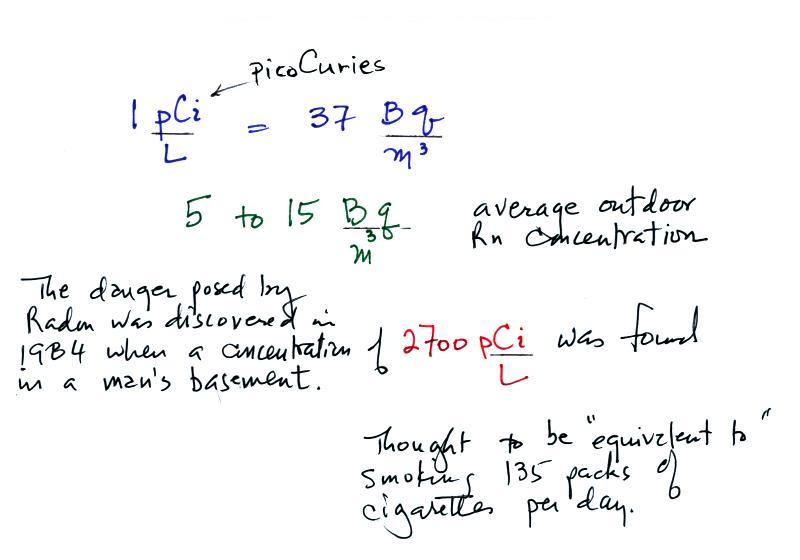 picoCuries
1 pCi/L = 37 Bq/m³
5 to 15 Bq/m³ average outdoor
Rn concentration
The danger posed by
Radon was discovered in
1984 when a concentration of 2700 pCi/L was found
in a man's basement.
Thought to be "equivalent to"
smoking 135 packs of
cigarettes per day.